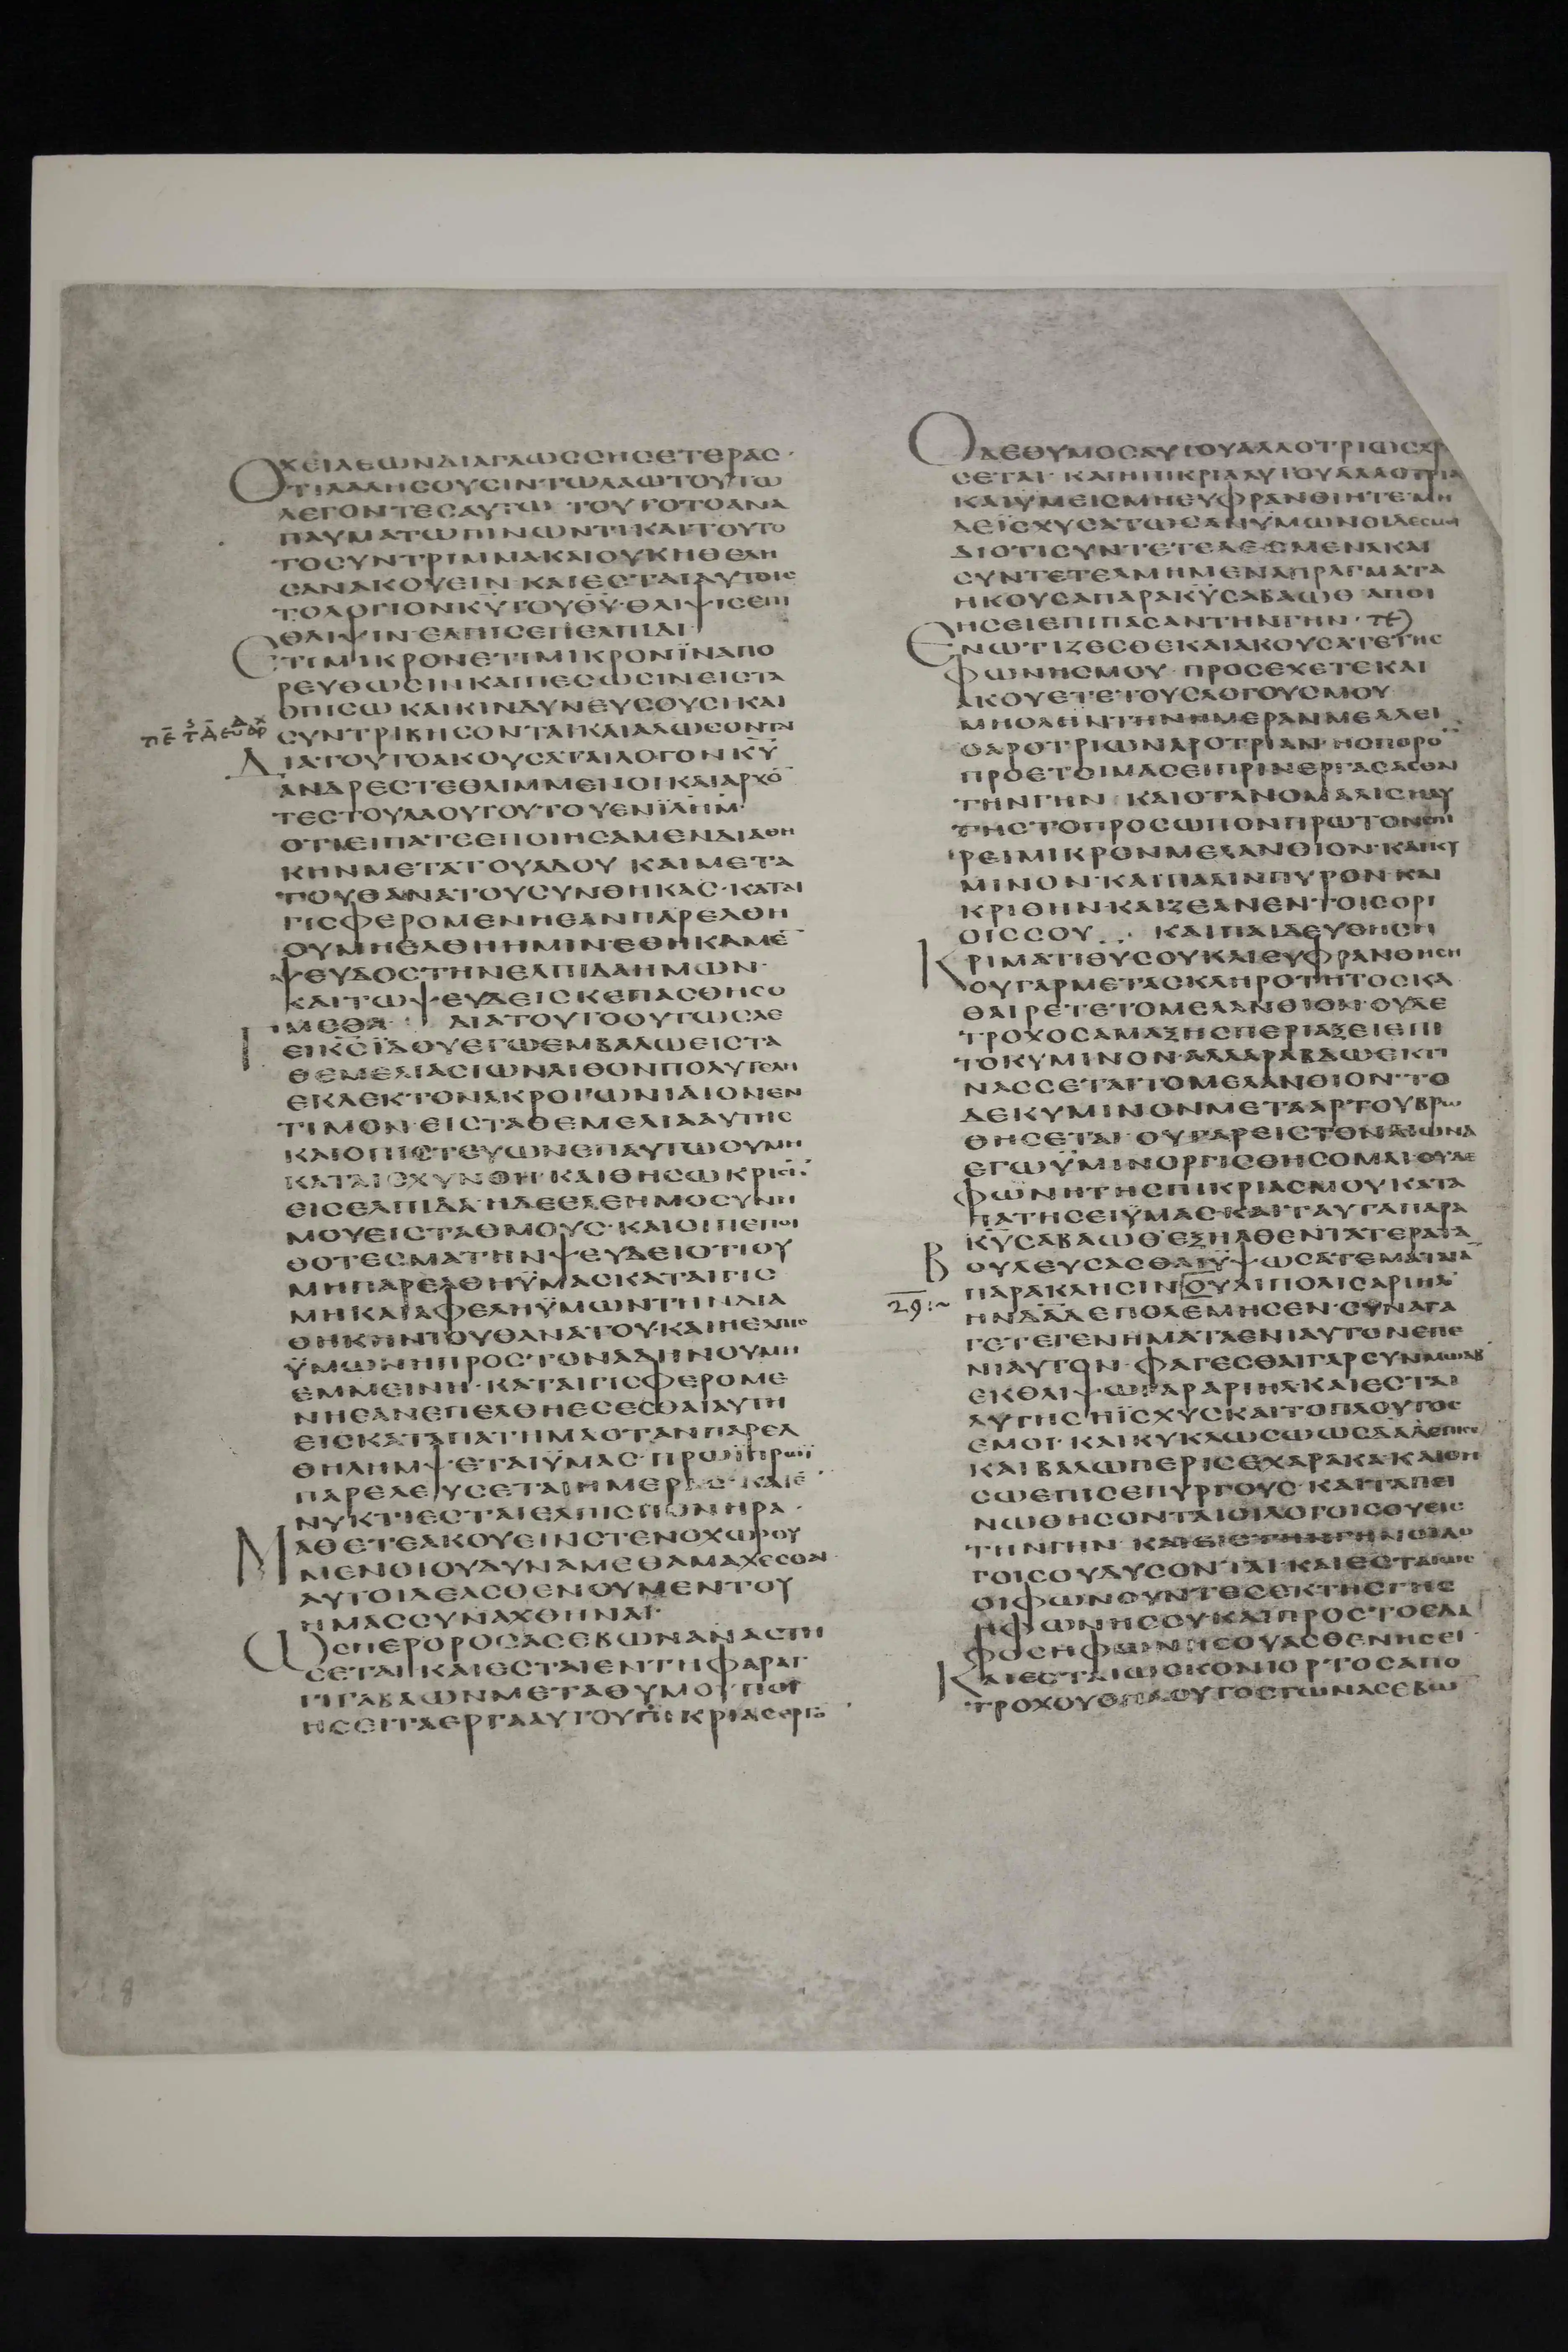 ΧΕΙΛΕΩΝΔΙΑΓΛΩϹϹΗϹΕΤΕΡΑϹ·
ΟΤΙΛΑΛΗϹΟΥϹΙΝΤΩΛΑΩΤΟΥΤΩ
ΛΕΓΟΝΤΕϹΑΥΤΩ ΤΟΥΤΟΤΟΑΝΑ
ΠΑΥΜΑΤΩΠΙΝΩΝΤΙ·ΚΑΙΤΟΥΤΟ
ΤΟϹΥΝΤΡΙΜΜΑΚΑΙΟΥΚΗΘΕΛΗ
ϹΑΝΑΚΟΥΕΙΝ·ΚΑΙΕϹΤΑΙΑΥΤΟΙϹ
ΤΟΛΟΓΙΟΝΚΥΤΟΥΘΥ·ΘΛΙΨΙϹΕΠΙ
ΘΛΙΨΙΝ·ΕΛΠΙϹΕΠΕΛΠΙΔΙ·
ΕΤΙΜΙΚΡΟΝΕΤΙΜΙΚΡΟΝΪΝΑΠΟ
ΡΕΥΘΩϹΙΝΚΑΙΠΕϹΩϹΙΝΕΙϹΤΑ
ΟΠΙϹΩ ΚΑΙΚΙΝΔΥΝΕΥϹΟΥϹΙΚΑΙ
ϹΥΝΤΡΙΒΗϹΟΝΤΑΙΚΑΙΑΛΩϹΟΝΤΑΙ
ΔΙΑΤΟΥΤΟΑΚΟΥϹΑΤΑΙΛΟΓΟΝΚΥ
ΑΝΔΡΕϹΤΕΘΛΙΜΜΕΝΟΙΚΑΙΑΡΧΟ̄
ΤΕϹΤΟΥΛΑΟΥΤΟΥΤΟΥΕΝΪΛΗΜ·
ΟΤΙΕΙΠΑΤΕΕΠΟΙΗϹΑΜΕΝΔΙΑΘΗ
ΚΗΝΜΕΤΑΤΟΥΑΔΟΥ ΚΑΙΜΕΤΑ
ΤΟΥΘΑΝΑΤΟΥϹΥΝΘΗΚΑϹ·ΚΑΤΑΙ
ΓΙϹΦΕΡΟΜΕΝΗΕΑΝΠΑΡΕΛΘΗ
ΟΥΜΗΕΛΘΗΗΜΙΝ·ΕΘΗΚΑΜΕ̄
ΨΕΥΔΟϹΤΗΝΕΛΠΙΔΑΗΜΩΝ·
ΚΑΙΤΩΨΕΥΔΕΙϹΚΕΠΑϹΘΗϹΟ
ΜΕΘΑ· ΔΙΑΤΟΥΤΟΟΥΤΩϹΛΕ
ΓΕΙΚϹΪΔΟΥΕΓΩΕΜΒΑΛΩΕΙϹΤΑ
ΘΕΜΕΛΙΑϹΙΩΝΛΙΘΟΝΠΟΛΥΤΕΛΗ
ΕΚΛΕΚΤΟΝΑΚΡΟΓΩΝΙΑΙΟΝΕΝ
ΤΙΜΟΝ·ΕΙϹΤΑΘΕΜΕΛΙΑΑΥΤΗϹ
ΚΑΙΟΠΙϹΤΕΥΩΝΕΠΑΥΤΩΟΥΜΗ
ΚΑΤΑΙϹΧΥΝΘΗ·ΚΑΙΘΗϹΩΚΡΙϹῙ
ΕΙϹΕΛΠΙΔΑ·ΗΔΕΕΛΕΗΜΟϹΥΝΗ
ΜΟΥΕΙϹΤΑΘΜΟΥϹ·ΚΑΙΟΙΠΕΠΟΙ
ΘΟΤΕϹΜΑΤΗΝΨΕΥΔΕΙΟΤΙΟΥ
ΜΗΠΑΡΕΛΘΗΫΜΑϹΚΑΤΑΙΓΙϹ
ΜΗΚΑΙΑΦΕΛΗΫΜΩΝΤΗΝΔΙΑ
ΘΗΚΗΝΤΟΥΘΑΝΑΤΟΥ·ΚΑΙΗΕΛΠΙϹ
ΫΜΩΝΗΠΡΟϹΤΟΝΑΔΗΝΟΥΜΗ
ΕΜΜΕΙΝΗ·ΚΑΤΑΙΓΙϹΦΕΡΟΜΕ
ΝΗΕΑΝΕΠΕΛΘΗΕϹΕϹΘΑΙΑΥΤΗ
ΕΙϹΚΑΤΑΠΑΤΗΜΑΟΤΑΝΠΑΡΕΛ
ΘΗΛΗΜΨΕΤΑΙΫΜΑϹ·ΠΡΩΪΠΡΩΪ
ΠΑΡΕΛΕΥϹΕΤΑΙΗΜΕΡΑϹ·ΚΑΙΕ̄
ΝΥΚΤΙΕϹΤΑΙΕΛΠΙϹΠΟΝΗΡΑ·
ΜΑΘΕΤΕΑΚΟΥΕΙΝϹΤΕΝΟΧΩΡΟΥ
ΜΕΝΟΙΟΥΔΥΝΑΜΕΘΑΜΑΧΕϹΘΑΙ·
ΑΥΤΟΙΔΕΑϹΘΕΝΟΥΜΕΝΤΟΥ
ΗΜΑϹϹΥΝΑΧΘΗΝΑΙ·
ΩϹΠΕΡΟΡΟϹΑϹΕΒΩΝΑΝΑϹΤΗ
ϹΕΤΑΙ·ΚΑΙΕϹΤΑΙΕΝΤΗΦΑΡΑΓ
ΓΙΓΑΒΑΩΝΜΕΤΑΘΥΜΟΥΠΟΙ
ΗϹΕΙΤΑΕΡΓΑΑΥΤΟΥΠΙΚΡΙΑϹΕΡΓΟ̄
ΟΔΕΘΥΜΟϹΑΥΤΟΥΑΛΛΟΤΡΙΩϹΧΡ
ϹΕΤΑΙ· ΚΑΙΗΠΙΚΡΙΑΑΥΤΟΥΑΛΛΟΤΡΙΑ
ΚΑΙΫΜΕΙϹΜΗΕΥΦΡΑΝΘΙΗΤΕ·ΜΗ
ΔΕΪϹΧΥϹΑΤΩϹΑΝΫΜΩΝΟΙΔΕϹΜΟΙ
ΔΙΟΤΙϹΥΝΤΕΤΕΛΕϹΜΕΝΑΚΑΙ
ϹΥΝΤΕΤΕΛΜΗΜΕΝΑΠΡΑΓΜΑΤΑ
ΗΚΟΥϹΑΠΑΡΑΚΥϹΑΒΑΩΘ ΑΠΟΙ
ΗϹΕΙΕΠΙΠΑϹΑΝΤΗΝΓΗΝ·
ΕΝΩΤΙΖΕϹΘΕΚΑΙΑΚΟΥϹΑΤΕΤΗϹ
ΦΩΝΗϹΜΟΥ ΠΡΟϹΕΧΕΤΕΚΑΙ
ΑΚΟΥΕΤΕΤΟΥϹΛΟΓΟΥϹΜΟΥ
ΜΗΟΛΗΝΤΗΝΗΜΕΡΑΝΜΕΛΛΕΙ
ΟΑΡΟΤΡΙΩΝΑΡΟΤΡΙΑΝ·ΗϹΠΟΡΟ̄
ΠΡΟΕΤΟΙΜΑϹΕΙΠΡΙΝΕΡΓΑϹΑϹΘΑΙ
ΤΗΝΓΗΝ ΚΑΙΟΤΑΝΟΜΑΛΙϹΗΑΥ
ΤΗϹΤΟΠΡΟϹΩΠΟΝΠΡΩΤΟΝϹΠΙ
ΡΕΙΜΙΚΡΟΝΜΕΛΑΝΘΙΟΝ·ΚΑΙΚΥ
ΜΙΝΟΝ·ΚΑΙΠΑΛΙΝΠΥΡΟΝ·ΚΑΙ
ΚΡΙΘΗΝ·ΚΑΙΖΕΑΝΕΝΤΟΙϹΟΡΙ
ΟΙϹϹΟΥ ΚΑΙΠΑΙΔΕΥΘΗϹΗ
ΚΡΙΜΑΤΙΘΥϹΟΥΚΑΙΕΥΦΡΑΝΘΗϹΗ
ΟΥΓΑΡΜΕΤΑϹΚΛΗΡΟΤΗΤΟϹΚΑ
ΘΑΙΡΕΤΕΤΟΜΕΛΑΝΘΙΟΝ·ΟΥΔΕ
ΤΡΟΧΟϹΑΜΑΞΗϹΠΕΡΙΑΞΕΙΕΠΙ
ΤΟΚΥΜΙΝΟΝ·ΑΛΛΑΡΑΒΔΩΕΚΤΙ
ΝΑϹϹΕΤΑΙΤΟΜΕΛΑΝΘΙΟΝ·ΤΟ
ΔΕΚΥΜΙΝΟΝΜΕΤΑΑΡΤΟΥΒΡΩ
ΘΗϹΕΤΑΙ·ΟΥΓΑΡΕΙϹΤΟΝΑΙΩΝΑ
ΕΓΩΫΜΙΝΟΡΓΙϹΘΗϹΟΜΑΙ·ΟΥΔΕ
ΦΩΝΗΤΗϹΠΙΚΡΙΑϹΜΟΥΚΑΤΑ
ΠΑΤΗϹΕΙΫΜΑϹ·ΚΑΙΤΑΥΤΑΠΑΡΑ
ΚΥϹΑΒΑΩΘ·ΕΞΗΛΘΕΝΤΑΤΕΡΑΤΑ
ΒΟΥΛΕΥϹΑϹΘΑΙΫΨΩϹΑΤΕΜΑΤΑΙᾹ
ΠΑΡΑΚΛΗϹΙΝΟΥΑΙΠΟΛΙϹΑΡΙΗΛ
ΗΝΔΑΔΕΠΟΛΕΜΗϹΕΝ·ϹΥΝΑΓΑ
ΓΕΤΕΓΕΝΗΜΑΤΑΕΝΙΑΥΤΟΝΕΠΕ
ΝΙΑΥΤΟΝ·ΦΑΓΕϹΘΑΙΓΑΡϹΥΝΜΩΑΒ
ΕΚΘΛΙΨΩΓΑΡΑΡΙΗΛ·ΚΑΙΕϹΤΑΙ
ΑΥΤΗϹΗΪϹΧΥϹΚΑΙΤΟΠΛΟΥΤΟϹ
ΕΜΟΙ·ΚΑΙΚΥΚΛΩϹΩΩϹΔΑΔΕΠΙϹΕ
ΚΑΙΒΑΛΩΠΕΡΙϹΕΧΑΡΑΚΑ·ΚΑΙΘΗ
ϹΩΕΠΙϹΕΠΥΡΓΟΥϹ·ΚΑΙΤΑΠΕΙ
ΝΩΘΗϹΟΝΤΑΙΟΙΛΟΓΟΙϹΟΥΕΙϹ
ΤΗΝΓΗΝ ΚΑΙΕΙϹΤΗΝΓΗΝΟΙΛΟ
ΓΟΙϹΟΥΔΥϹΟΝΤΑΙ·ΚΑΙΕϹΤΑΙΩϹ
ΟΙΦΩΝΟΥΝΤΕϹΕΚΤΗϹΓΗϹ
ΗΦΩΝΗϹΟΥ·ΚΑΙΠΡΟϹΤΟΕΔΑ
ΦΟϹΗΦΩΝΗϹΟΥΑϹΘΕΝΗϹΕΙ·
ΚΑΙΕϹΤΑΙΩϹΚΟΝΙΟΡΤΟϹΑΠΟ
ΤΡΟΧΟΥΟΠΛΟΥΤΟϹΤΩΝΑϹΕΒΩ̄
29:~